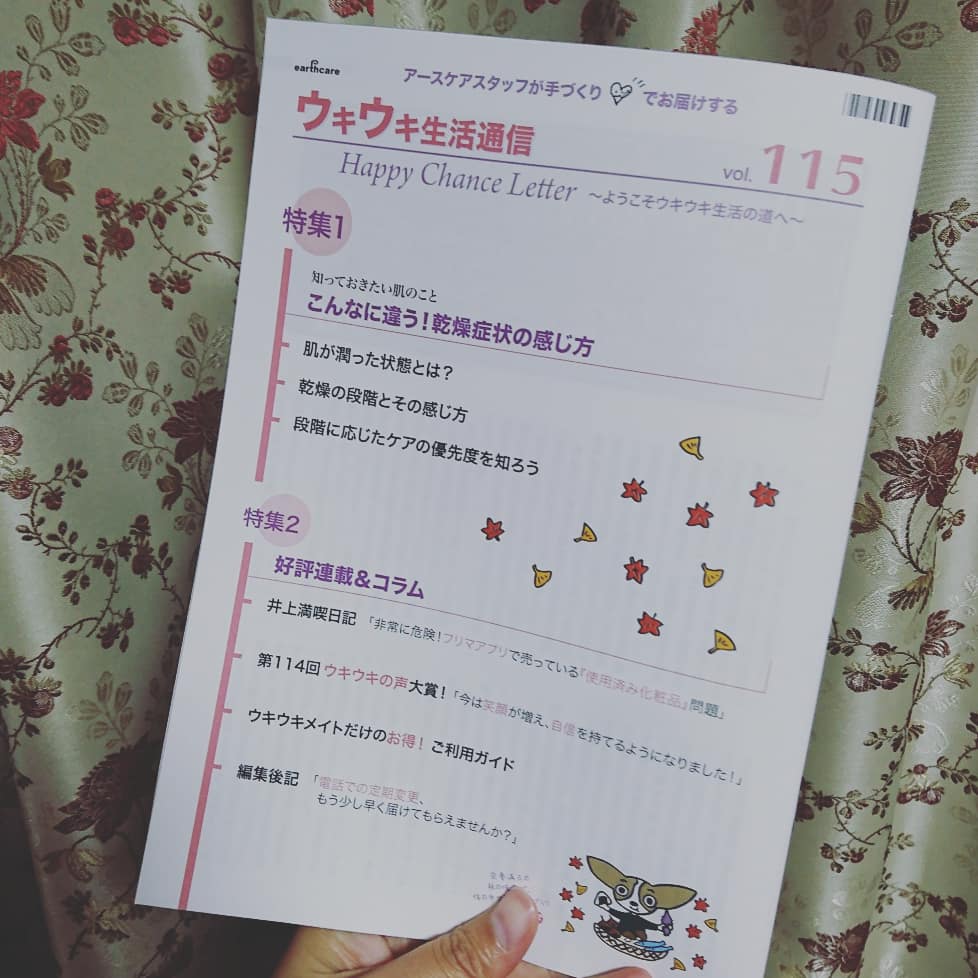 earthcare
アースケアスタッフが手づくり でお届けする
ウキウキ生活通信
vol. 115
Happy Chance Letter ～ようこそウキウキ生活の道へ～
特集1
知っておきたい肌のこと
こんなに違う！乾燥症状の感じ方
肌が潤った状態とは？
乾燥の段階とその感じ方
段階に応じたケアの優先度を知ろう
特集2
好評連載＆コラム
井上満喫日記 「非常に危険！フリマアプリで売っている『使用済み化粧品』問題」
第114回 ウキウキの声大賞！「今は笑顔が増え、自信を持てるようになりました！」
ウキウキメイトだけのお得！ ご利用ガイド
編集後記 「電話での定期変更、
もう少し早く届けてもらえませんか？」